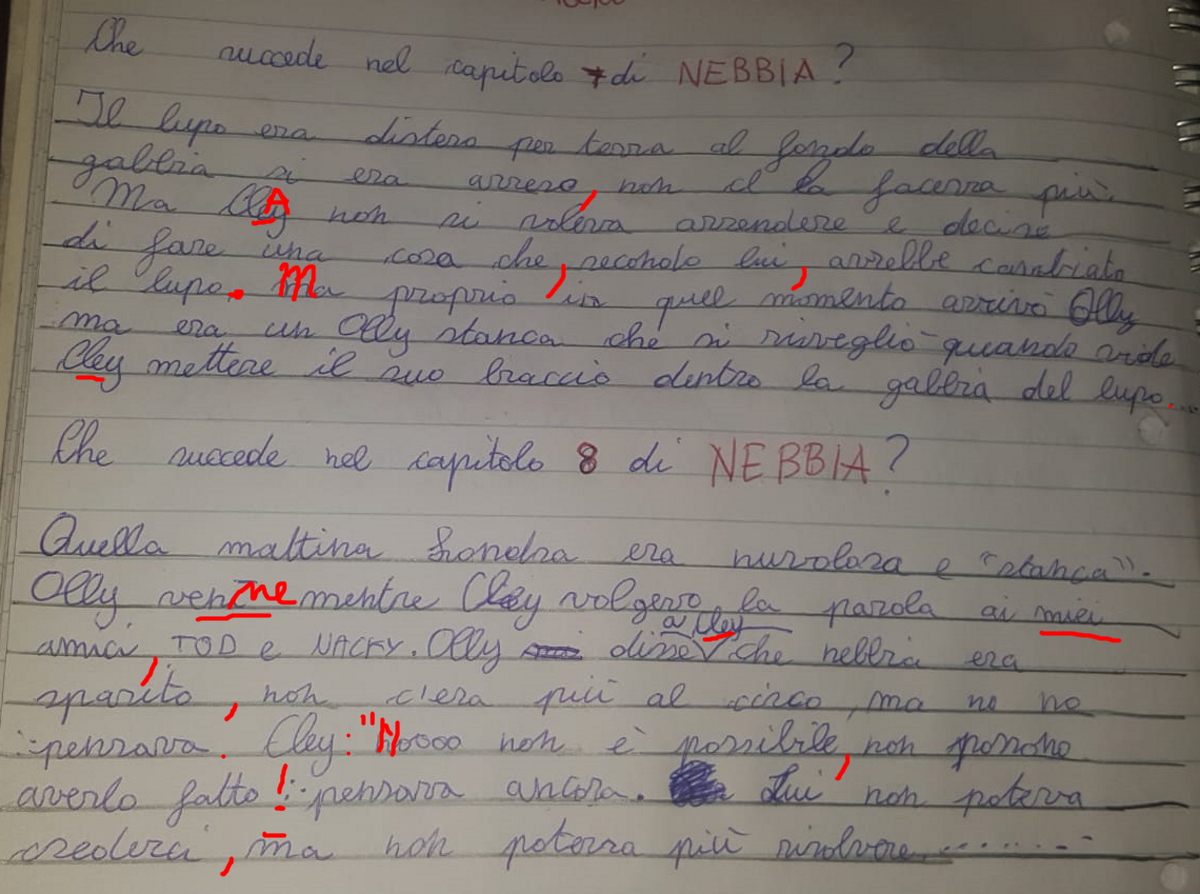 Che succede nel capitolo 7 di NEBBIA?
Il lupo era disteso per terra al fondo della
gabbia si era arreso, non ce la faceva più.
Ma Cley A non si voleva arrendere e decise
di fare una cosa che, secondo lui, avrebbe cambiato
il lupo. Ma proprio in quel momento arrivò Olly
ma era un Olly stanca che si risvegliò quando vide
Cley mettere il suo braccio dentro la gabbia del lupo...
Che succede nel capitolo 8 di NEBBIA?
Quella mattina Londra era nuvolosa e "stanca".
Olly venne mentre Cley volgevo la parola ai miei
a Cley
amici, TOD e NACKY. Olly disse che nebbia era
sparito, non c'era più al circo, ma no no
pensava. Cley: "Noooo non è possibile, non possono
averlo fatto!: pensava ancora. Lui non poteva
crederci, ma non poteva più risolvere..........